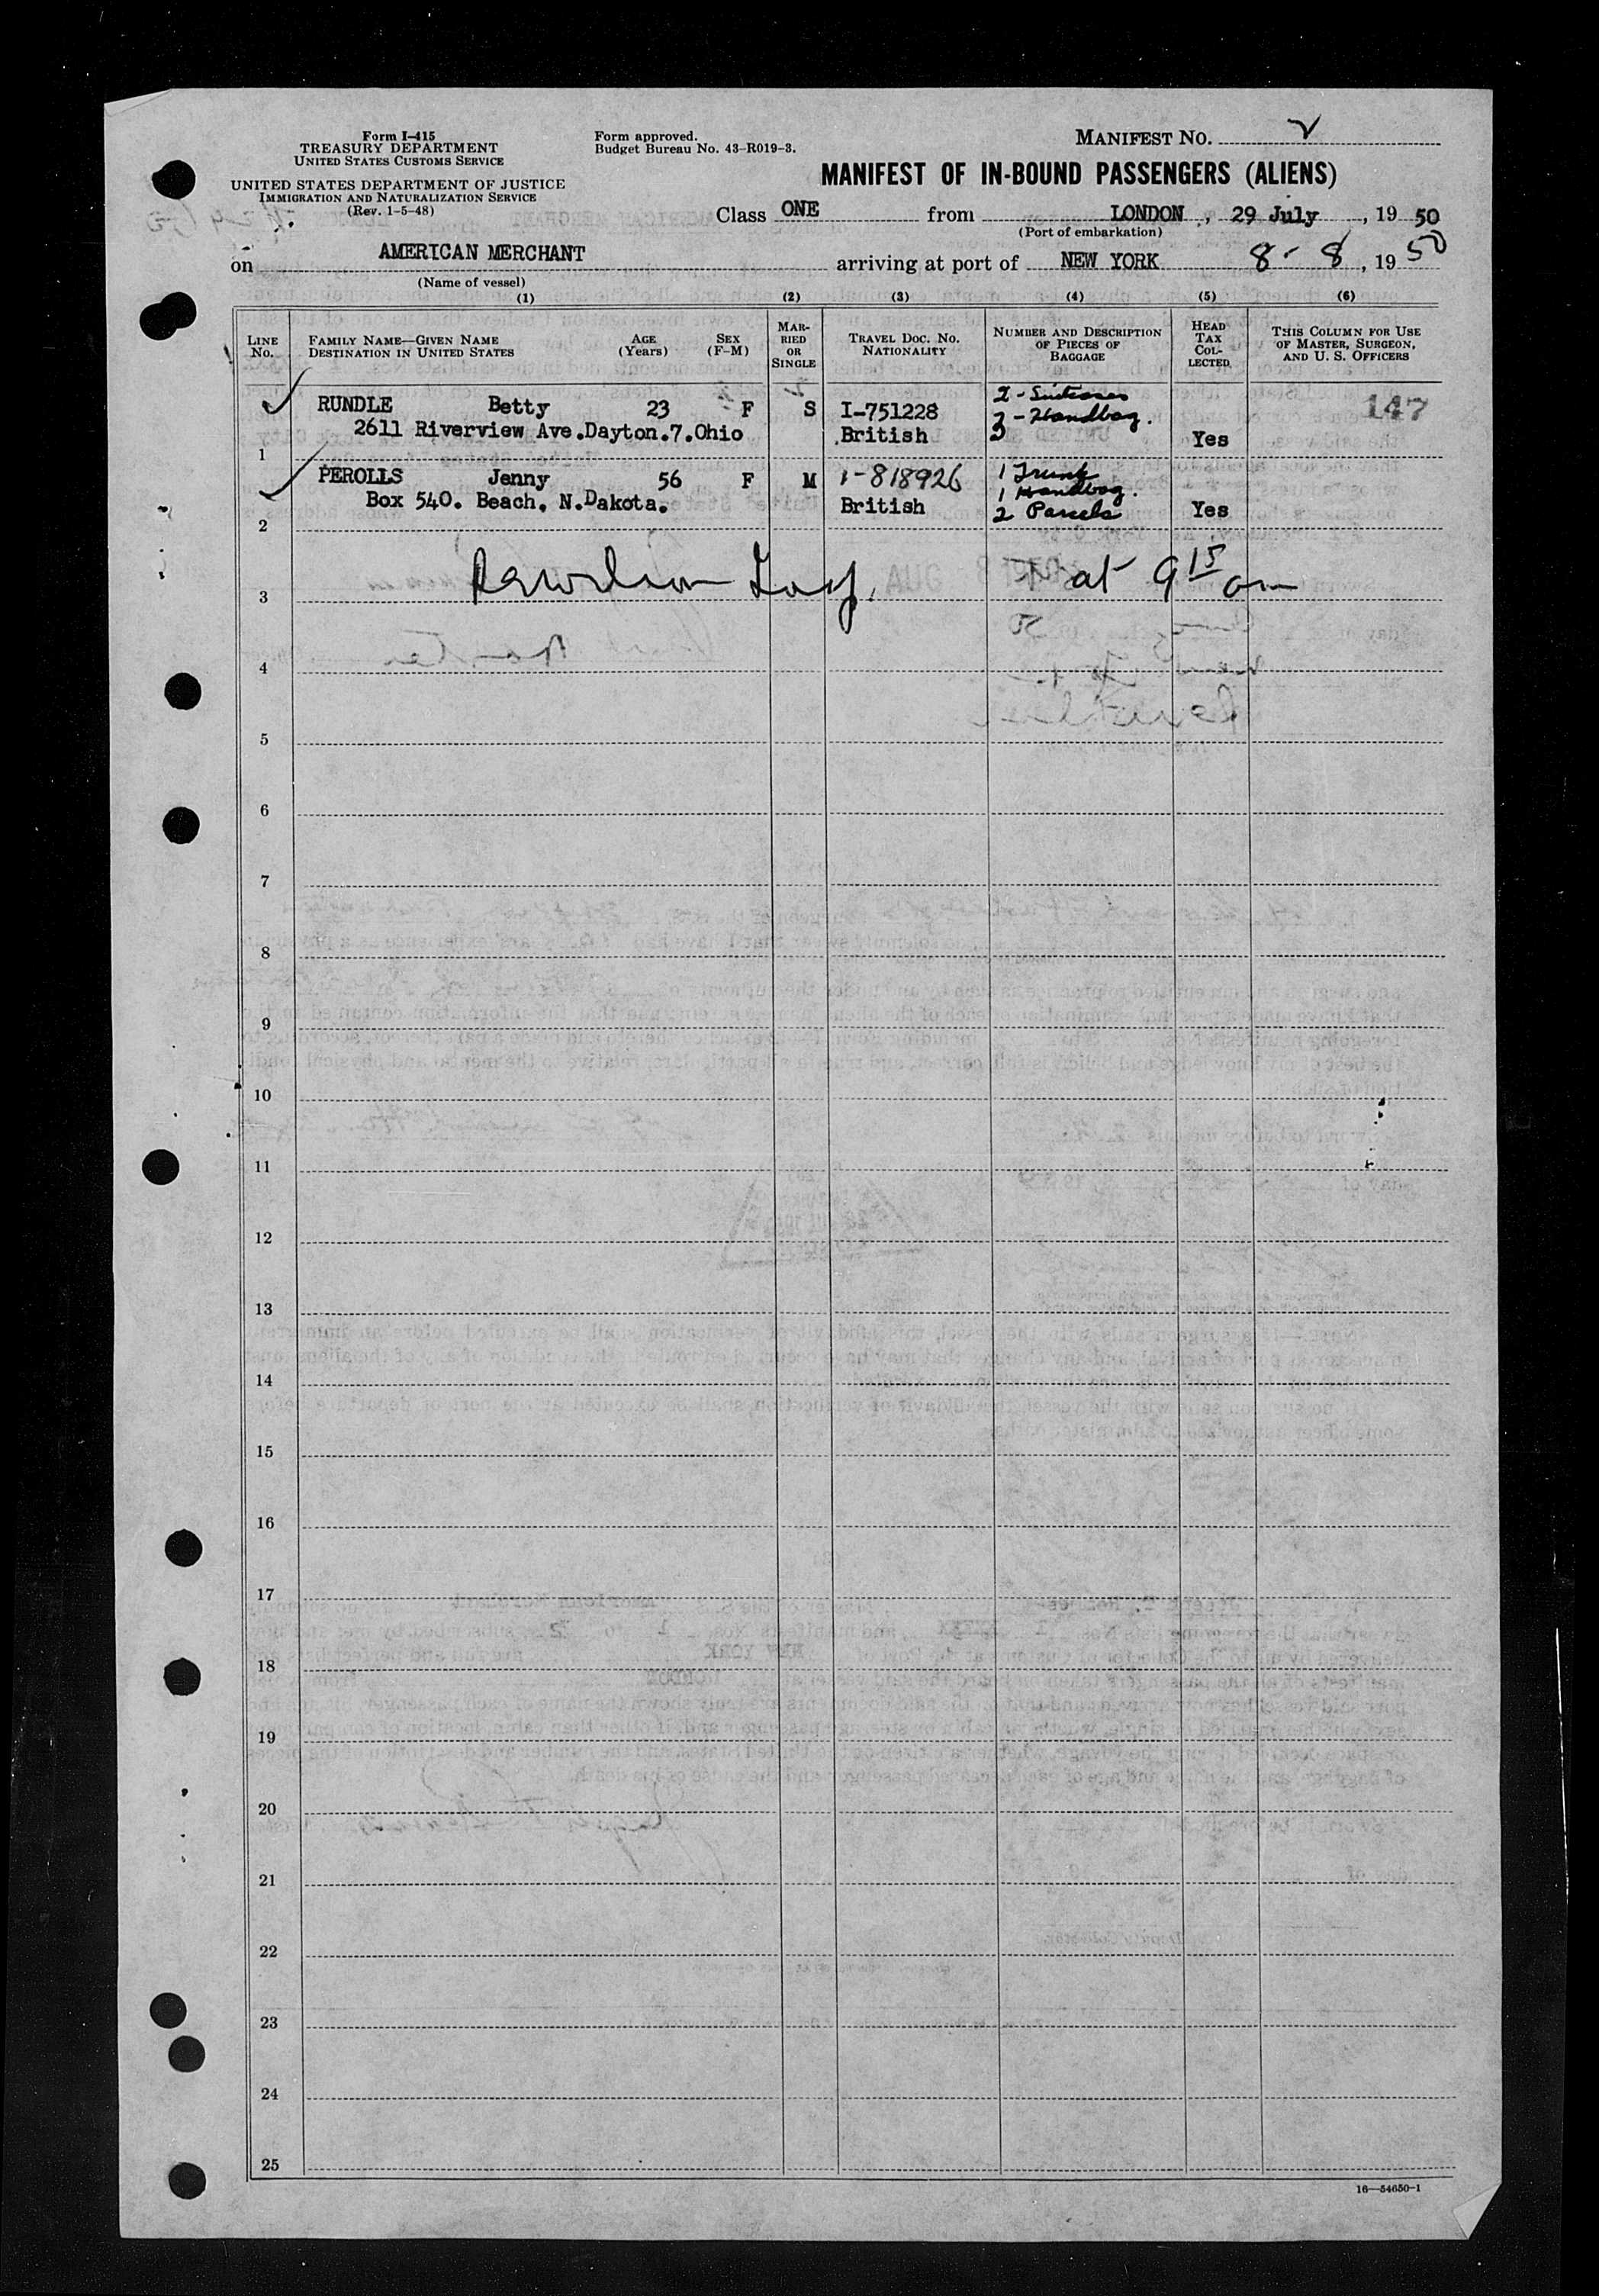 Form I-415
TREASURY DEPARTMENT
UNITED STATES CUSTOMS SERVICE
UNITED STATES DEPARTMENT OF JUSTICE
IMMIGRATION AND NATURALIZATION SERVICE
(Rev. 1-5-48)
Form approved.
Budget Bureau No. 43-R019-3.
MANIFEST NO. 2
MANIFEST OF IN-BOUND PASSENGERS (ALIENS)
Class ONE from LONDON, 29 July, 19 50
(Port of embarkation)
on AMERICAN MERCHANT arriving at port of NEW YORK 8-8, 19 50
(Name of vessel)
(1) (2) (3) (4) (5) (6)
LINE No.
FAMILY NAME—GIVEN NAME DESTINATION IN UNITED STATES
AGE (Years)
SEX (F-M)
MAR-RIED OR SINGLE
TRAVEL DOC. NO. NATIONALITY
NUMBER AND DESCRIPTION OF PIECES OF BAGGAGE
HEAD TAX COL-LECTED
THIS COLUMN FOR USE OF MASTER, SURGEON, AND U. S. OFFICERS
RUNDLE Betty 23 F S I-751228 2-Suitcases 147
2611 Riverview Ave.Dayton.7.Ohio British Handbag. Yes
1
PEROLLS Jenny 56 F M 1-818926 1 Trunk
1 Handbag.
Box 540. Beach, N.Dakota. British 2 Parcels Yes
2
at 9 15 am
3
4
5
6
7
8
9
10
11
12
13
14
15
16
17
18
19
20
21
22
23
24
25
16—54650-1